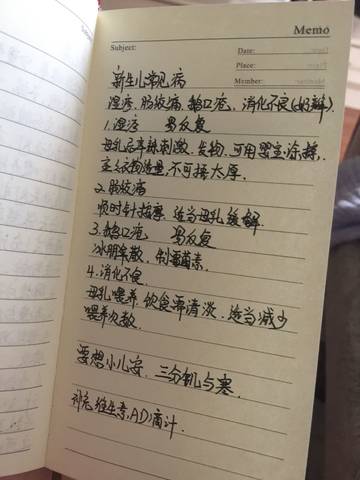 Memo
Subject:
Date:
Place:
Member:
新生儿常见病
湿疹, 肠绞痛, 鹅口疮, 消化不良(奶瓣).
1.湿疹 易反复
母乳忌辛辣刺激, 发物, 可用婴宝涂擦,
衣物适量, 不可捂太厚.
2.肠绞痛
顺时针按摩 适当母乳缓解
3.鹅口疮 易反复
散, 制霉菌素.
4.消化不良.
母乳喂养, 饮食需清淡, 适当减少
喂养次数.
要想小儿安, 三分饥与寒.
补充维生素AD滴计.